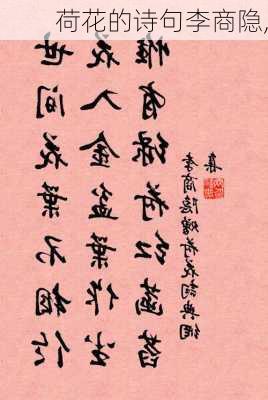 荷花的诗句李商隐,
世间花葉不相伦
花入金盆葉作尘
惟有绿荷红菡萏
集
李商隱赠荷花詞典網